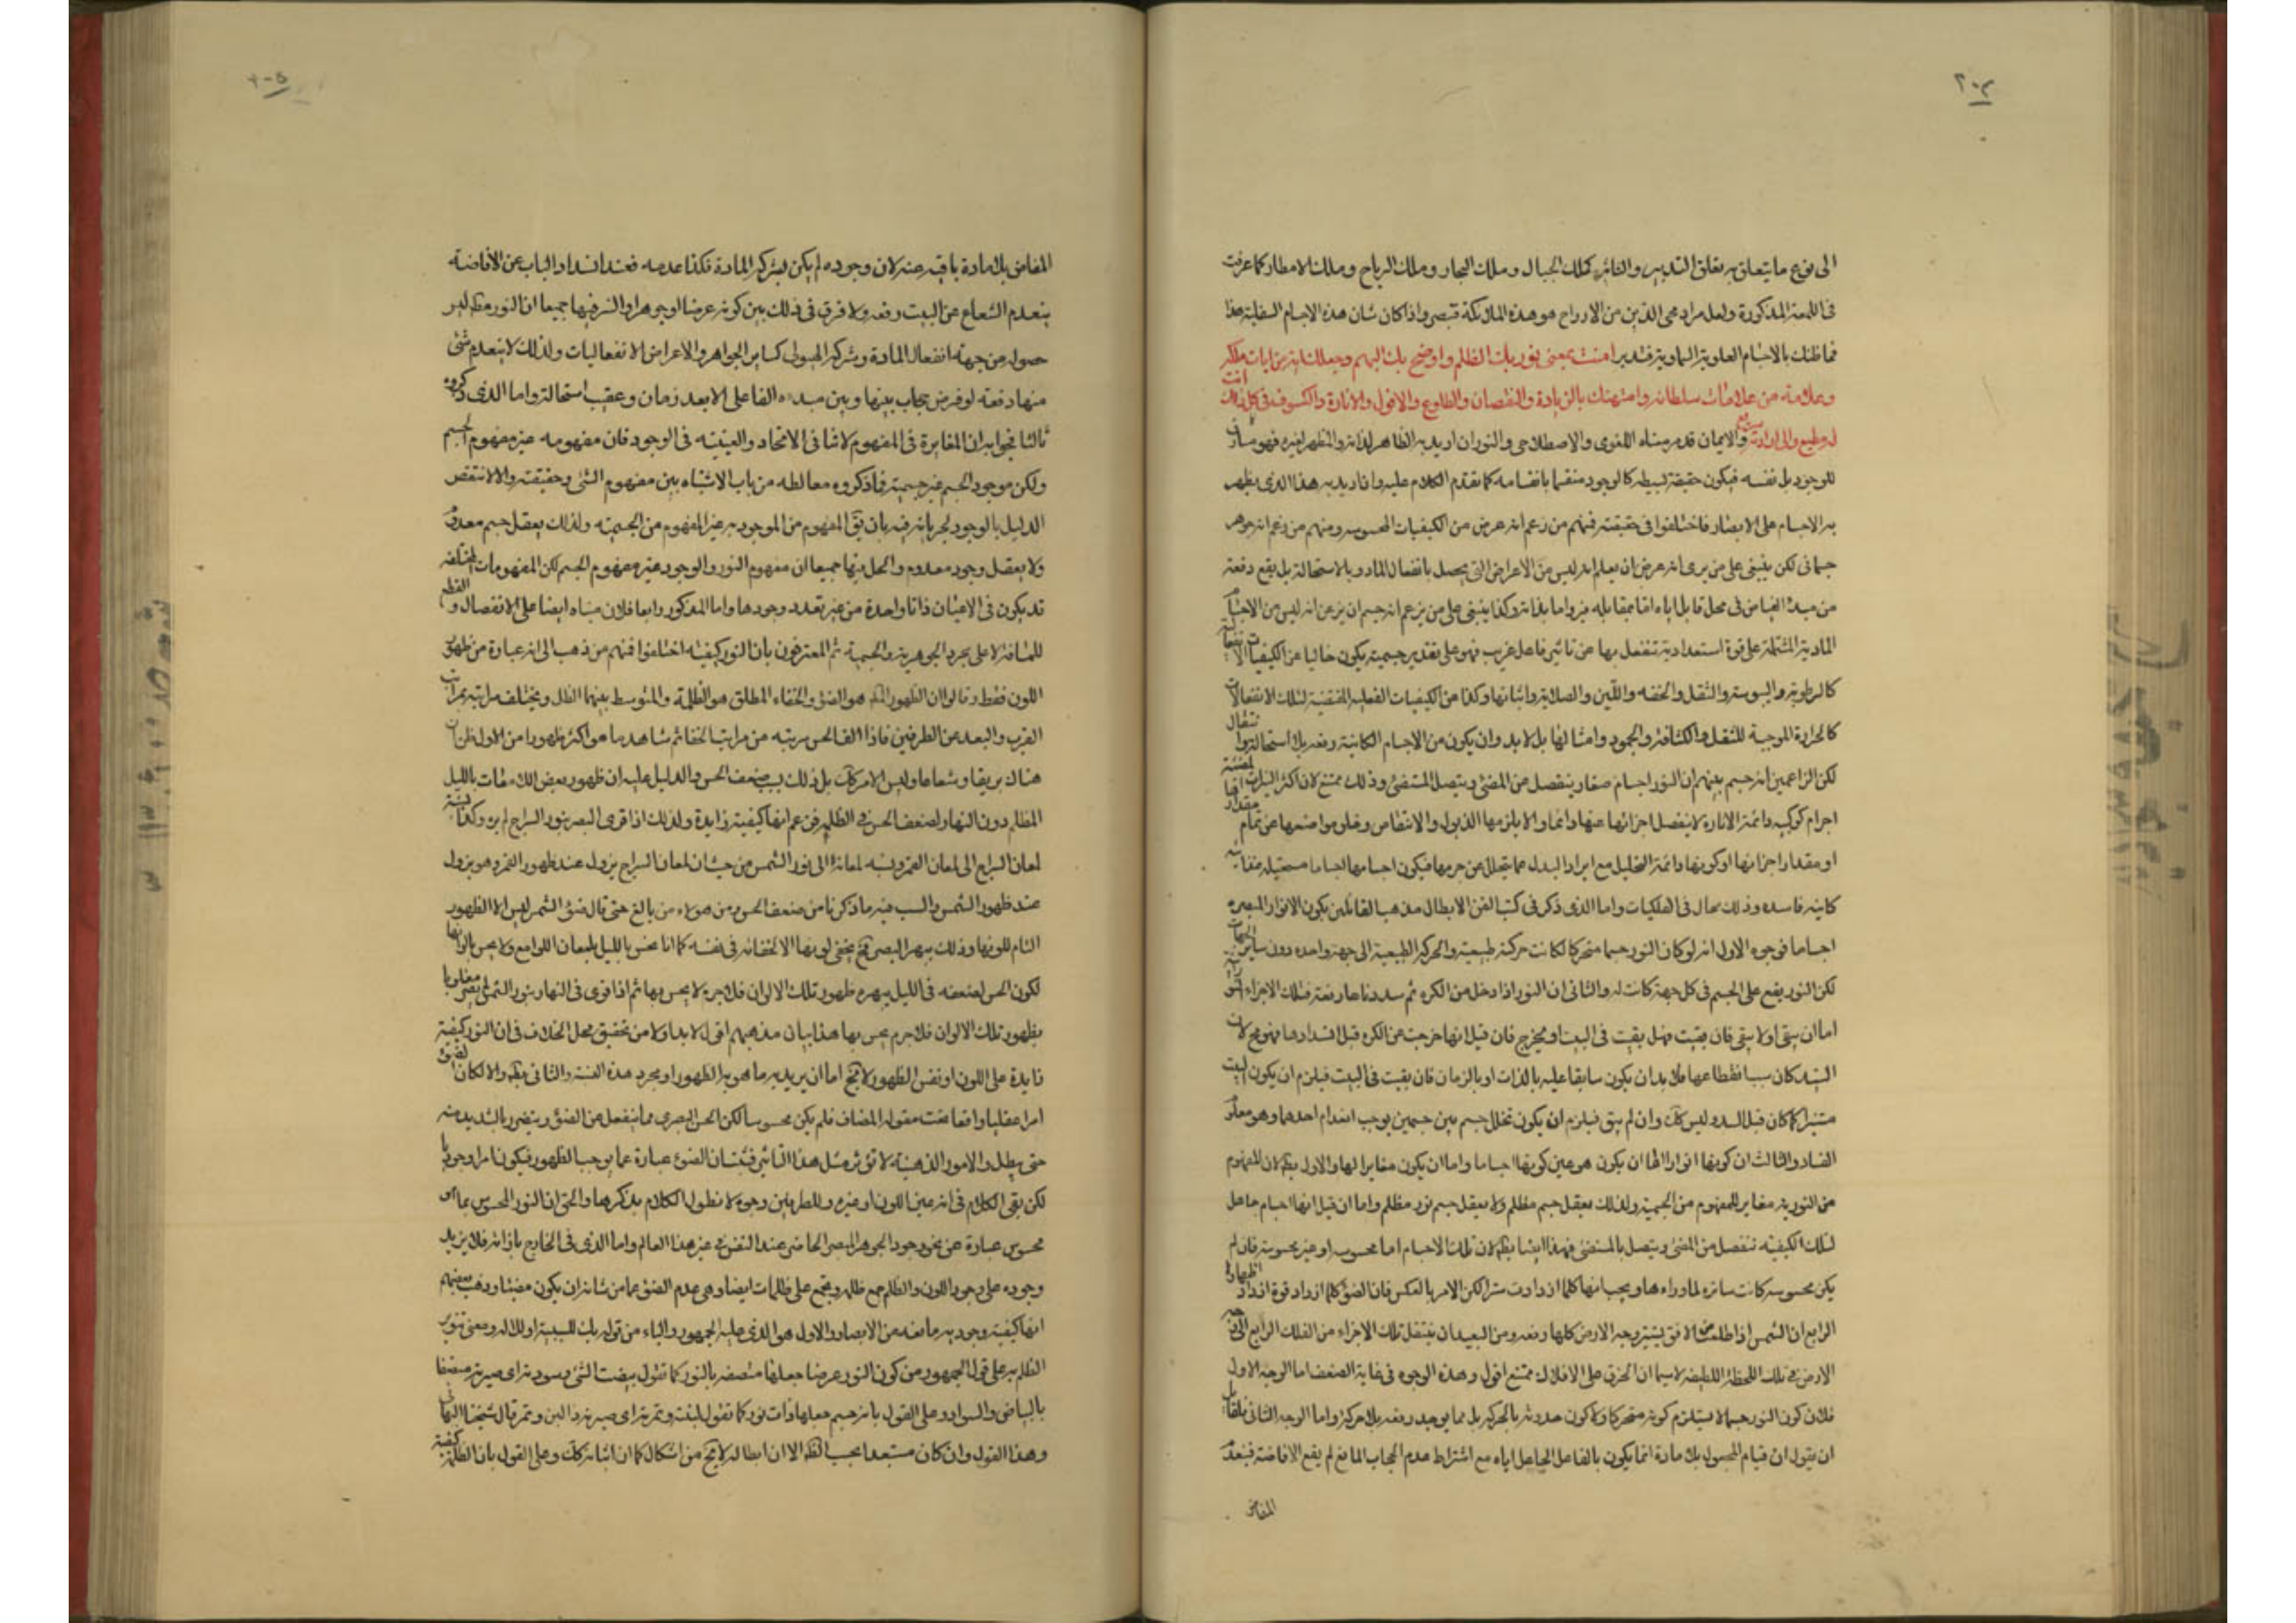 ٢٠٤
الى نوع ما يتعلق به تعلق التدبير والتاثير كملك الجبال وملك البحار وملك الرياح وملك الامطار كما عرفت
في اللمعة المذكورة ولعل مراد محى الدين من الارواح هو هذه الملائكة فتبصر واذا كان شان هذه الاجسام السفلية هذا
فما ظنك بالاجسام العلوية السماوية فتدبر امنت بمن نور بك الظلم واوضح بك البهم وجعلك اية من ايات ملكه
وعلامة من علامات سلطانه وامتهنك بالزيادة والنقصان والطلوع والافول والانارة والكسوف في كل ذلك انت
له مطيع والى ارادته سريع والايمان قد مر معناه اللغوى والاصطلاحى والنور ان اريد به الظاهر لذاته والمظهر لغيره فهو مساوق
للوجود بل نفسه فيكون حقيقة بسيطه كالوجود منقسما بانقسامه كما تقدم الكلام عليه وان اريد به هذا الذى يظهر
به الاجسام على الابصار فاختلفوا فى حقيقته فمنهم من زعم انه عرض من الكيفيات المحسوسه ومنهم من زعم انه جوهر
جسمانى لكن ينبغى على من يرى انه عرض ان يعلم انه ليس من الاعراض التى يحصل بانفعال المادة وبالاستحالة بل يقع دفعة
من مبدء الفياض فى محل قابل اياه اما بمقابله نير واما بذاته وكذا ينبغى على من يزعم انه جسم ان يزعم انه ليس من الاجسام
المادية المشتملة على قوة استعدادية تنفعل بها عن تاثير فاعل غريب فهو على تقدير جسميته يكون خاليا عن الكيفيات الانفعالية
كالرطوبة واليبوسة والثقل والخفه واللين والصلابة وامثالها وكذا من الكيفيات الفعلية المقتضية لتلك الانفعالات
كالحرارة الموجبة للثقل والكثافة والجمود وامثالها بل لابد وان يكون من الاجسام الكائنة دفعه بلا استحالة وانتقال
لكن الزاعمين انه جسم بينهم ان النور اجسام صغار ينفصل من المضئ ويتصل المستضئ وذلك ممتنع لان اكثر النيرات المضيئة
اجرام كوكبيه دائمة الانارة لا ينفصل اجزائها عنها دائما والا يلزمها الذبول والانتقاص وخلو مواضعها عن تمام مقدارها
او مقدار اجزائها او كونها دائمة التحليل مع ايراد البدل عما يتحلل عن جرمها فيكون اجسامها اجساما مستحيله غذائيه
كاينه فاسده وذلك محال فى الفلكيات واما الذى ذكر فى كتب الفن لابطال مذهب القائلين بكون الانوار المبصره
اجساما فوجوه الاول انه لو كان النور جسما متحركا لكانت حركته طبيعية والحركة الطبيعية الى جهة واحده دون سائر الجهات
لكن النور يقع على الجسم فى كل جهة كانت له والثانى ان النور اذا دخل من الكره ثم سددناها دفعة فتلك الاجزاء النورية
اما ان تبقى اولا يبقى فان بقيت فهل بقيت فى البيت او يخرج فان قيل انها خرجت عن الكره قبل انسدادها فهو مح لان
السد كان سبب انقطاعها فلابد ان يكون سابقا عليه بالذات او بالزمان فان بقيت فى البيت فيلزم ان يكون البيت
مستنيرا كما كان قبل السد وليس كك وان لم يبق فيلزم ان يكون تخلل جسم بين جسمين يوجب انعدام احدهما وهو معلوم
الفساد والثالث ان كونها انوارا اما ان يكون هو عين كونها اجساما واما ان يكون مغايرا لها والاول بط لان المفهوم
من النورية مغاير للمفهوم من الجسمية ولذلك يعقل جسم مظلم ولا يعقل جسم نور مظلم واما ان قيل انها اجسام حاصل
لتلك الكيفيه تنفصل من المضئ ويتصل بالمستضئ فهذا ايضا بط لان تلك الاجسام اما محسوسه او غير محسوسة فان لم
يكن محسوسه كانت ساتره لما وراءها ويجب انها كلما ازدادت سترا لكن الامر بالعكس فان الضوء كلما ازداد قوة ازداد اظهارا
الرابع ان الشمس اذا طلعت من الافق يستنير وجه الارض كلها دفعه ومن البعيد ان ينتقل تلك الاجزاء من الفلك الرابع الى وجه
الارض فى تلك اللحظة اللطيفه لاسيما ان الخرق على الافلاك ممتنع اقول وهذه الوجوه فى غاية الضعف اما الوجه الاول
فلان كون النور جسما لا يستلزم كونه متحركا ولا كون حدوثه بالحركة بل مما يوجد دفعه بلا حركة واما الوجه الثانى فلقائل
ان يقول ان قيام المجعول بلا مادة انما يكون بالفاعل الجاعل اياه مع اشتراط عدم الحجاب المانع لم يقع الافاضة فينعدم
المفاض
٢٠٥
المفاض بلا مادة باقيه عنه لان وجوده لم يكن بشركة المادة فكذا عدمه فعند انسداد الباب عن الافاضة
ينعدم الشعاع عن البيت دفعه ولا فرق فى ذلك بين كونه عرضا او جوهرا والسر فيها جميعا ان النور مط ليس
حصوله من جهة انفعال المادة وشركة الهيولى كساير الجواهر والاعراض الانفعاليات ولذلك لا ينعدم شئ
منها دفعة لو فرض حجاب بينها وبين مبدءه الفاعلى الا بعد زمان وعقيب استحالة واما الذى ذكروه
ثالثا فجوابه ان المغايرة فى المفهوم لا تنافى الاتحاد والعينيه فى الوجود فان مفهومه غير مفهوم الجسم
ولكن موجود الجسم غير جسميته فما ذكروه مغالطه من باب الاشتباه بين مفهوم الشئ وحقيقته والا لانتقض
الدليل بالوجود لجريانه فيه بان يق المفهوم من الموجود به غير المفهوم من الجسميه ولذلك يعقل جسم معدوم
ولا يعقل وجود معدوم والحل فيها جميعا ان مفهوم النور والوجود غير مفهوم الجسم لكن المفهومات المختلفه
قد يكون فى الاعيان ذاتا واحدة من غير تعدد وجودها واما المذكور رابعا فلان مبناه ايضا على الانفصال والقطع
للمسافة لا على مجرد الجوهرية والجسمية ثم المعترفون بان النور كيفيه اختلفوا فمنهم من ذهب الى انه عبارة من ظهور
اللون فقط وقالوا ان الظهور المط هو الضوء والخفاء المطلق هو الظلمة والمتوسط بينهما الظل ويختلف مراتبه بمراتب
القرب والبعد عن الطرفين فاذا الف الحس مرتبه من مراتب الخفا ثم شاهد ما هو اكثر ظهورا من الاول ظن ان
هناك بريقا وشعاعا وليس الامر كك بل ذلك بسبب ضعف الحس والدليل عليه ان ظهور بعض اللامعات بالليل
المظلم دون النهار لضعف الحس فى الظلمه فزعم انها كيفية زايدة ولذلك اذا قوى البصر بنور السراج لم يره وكذا نسبة
لمعان السراج الى لمعان القمر ونسبه لمعانه الى نور الشمس من حيث ان لمعان السراج يزول عند ظهور القمر وهو يزول
عند ظهور الشمس والسبب فيه ما ذكرنا من ضعف الحس ومن هولاء من بالغ حتى قال ضوء الشمس ليس الا الظهور
التام للونها وذلك يبهر البصر فح يخفى لونها لا لخفائه فى نفسه كما انا نحس بالليل بلمعان اللوامع ولا يحس بالوانها
لكون الحس لضعفه فى الليل يبهره ظهور تلك الالوان فلا جرم لا يحس بها ثم اذا قوى فى النهار بنور الشمس لم يصر مغلوبا
بظهور تلك الالوان فلا جرم يحس بها هذا بيان مذهبهم اقول لابد اولا من تحقيق محل الخلاف فى ان النور كيفية
زايدة على اللون او نفس الظهور لا يخ اما ان يريد به ما هو به الظهور او مجرد هذه النسبة والثانى بط والا لكان الضوء
امرا عقليا واقعا تحت مقوله المضاف فلم يكن محسوسا لكن الحس البصرى مما ينفعل عن الضوء ويتضرر بالشديد منه
حتى يبطل والامور الذهنيه لا تؤثر مثل هذا التاثير فثبت ان الضوء عبارة عما يوجب الظهور فيكون امرا وجوديا
لكن بقى الكلام فى انه عين اللون او غيره وللطرفين وجوه لا نطول الكلام بذكرها والحق ان النور المحسوس بما هو
محسوس عبارة عن نحو وجود الجوهر المبصر الحاضر عند النفس فى غير هذا العالم واما الذى فى الخارج بازائه فلا يزيد
وجوده على وجود اللون والظلم جمع ظلمه ويجمع على ظلمات ايضا وهى عدم الضوء عما من شانه ان يكون مضيئا وذهب بعضهم
انها كيفية وجوديه مانعه من الابصار والاول هو الذى عليه الجمهور والباء من قوله بك للسببية او للاله ومعنى تنوير
الظلم به على قول الجمهور من كون النور عرضا جعلها متصفه بالنور كما تقول بيضت الشئ وسودته اى صيرته متصفا
بالبياض والسواد وعلى القول بانه جسم جعلها ذات نور كما تقول لبنته وتمرته اى صيرته ذا لبن وتمر قال شيخنا البهائى
وهذا القول وان كان مستبعدا بحسب الظ الا ان ابطاله لا يخ من اشكال كما ان اثباته كك وعلى القول بان الظلمة كيفية